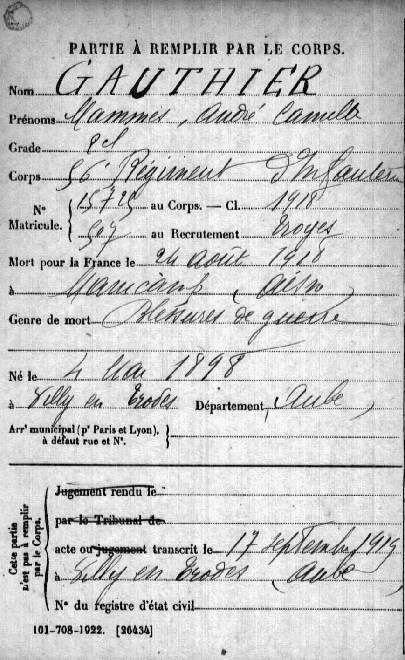 PARTIE À REMPLIR PAR LE CORPS.
Nom GAUTHIER
Prénoms Mammès, André Camille
Grade 2e Cl
Corps 56e Régiment d'Infanterie
N° Matricule. { 15725 au Corps. — Cl. 1918
507 au Recrutement Troyes
Mort pour la France le 24 août 1918
à Manicamp (Aisne)
Genre de mort Blessures de guerre
Né le 4 Mai 1898
à Villy en Trodes Département Aube
Arr¹ municipal (pʳ Paris et Lyon), à défaut rue et N°. }
Cette partie n'est pas à remplir par le Corps.
Jugement rendu le
par le Tribunal de
acte ou jugement transcrit le 17 septembre 1919
à Villy en Trodes (Aube)
N° du registre d'état civil
161-708-1922. [26434]